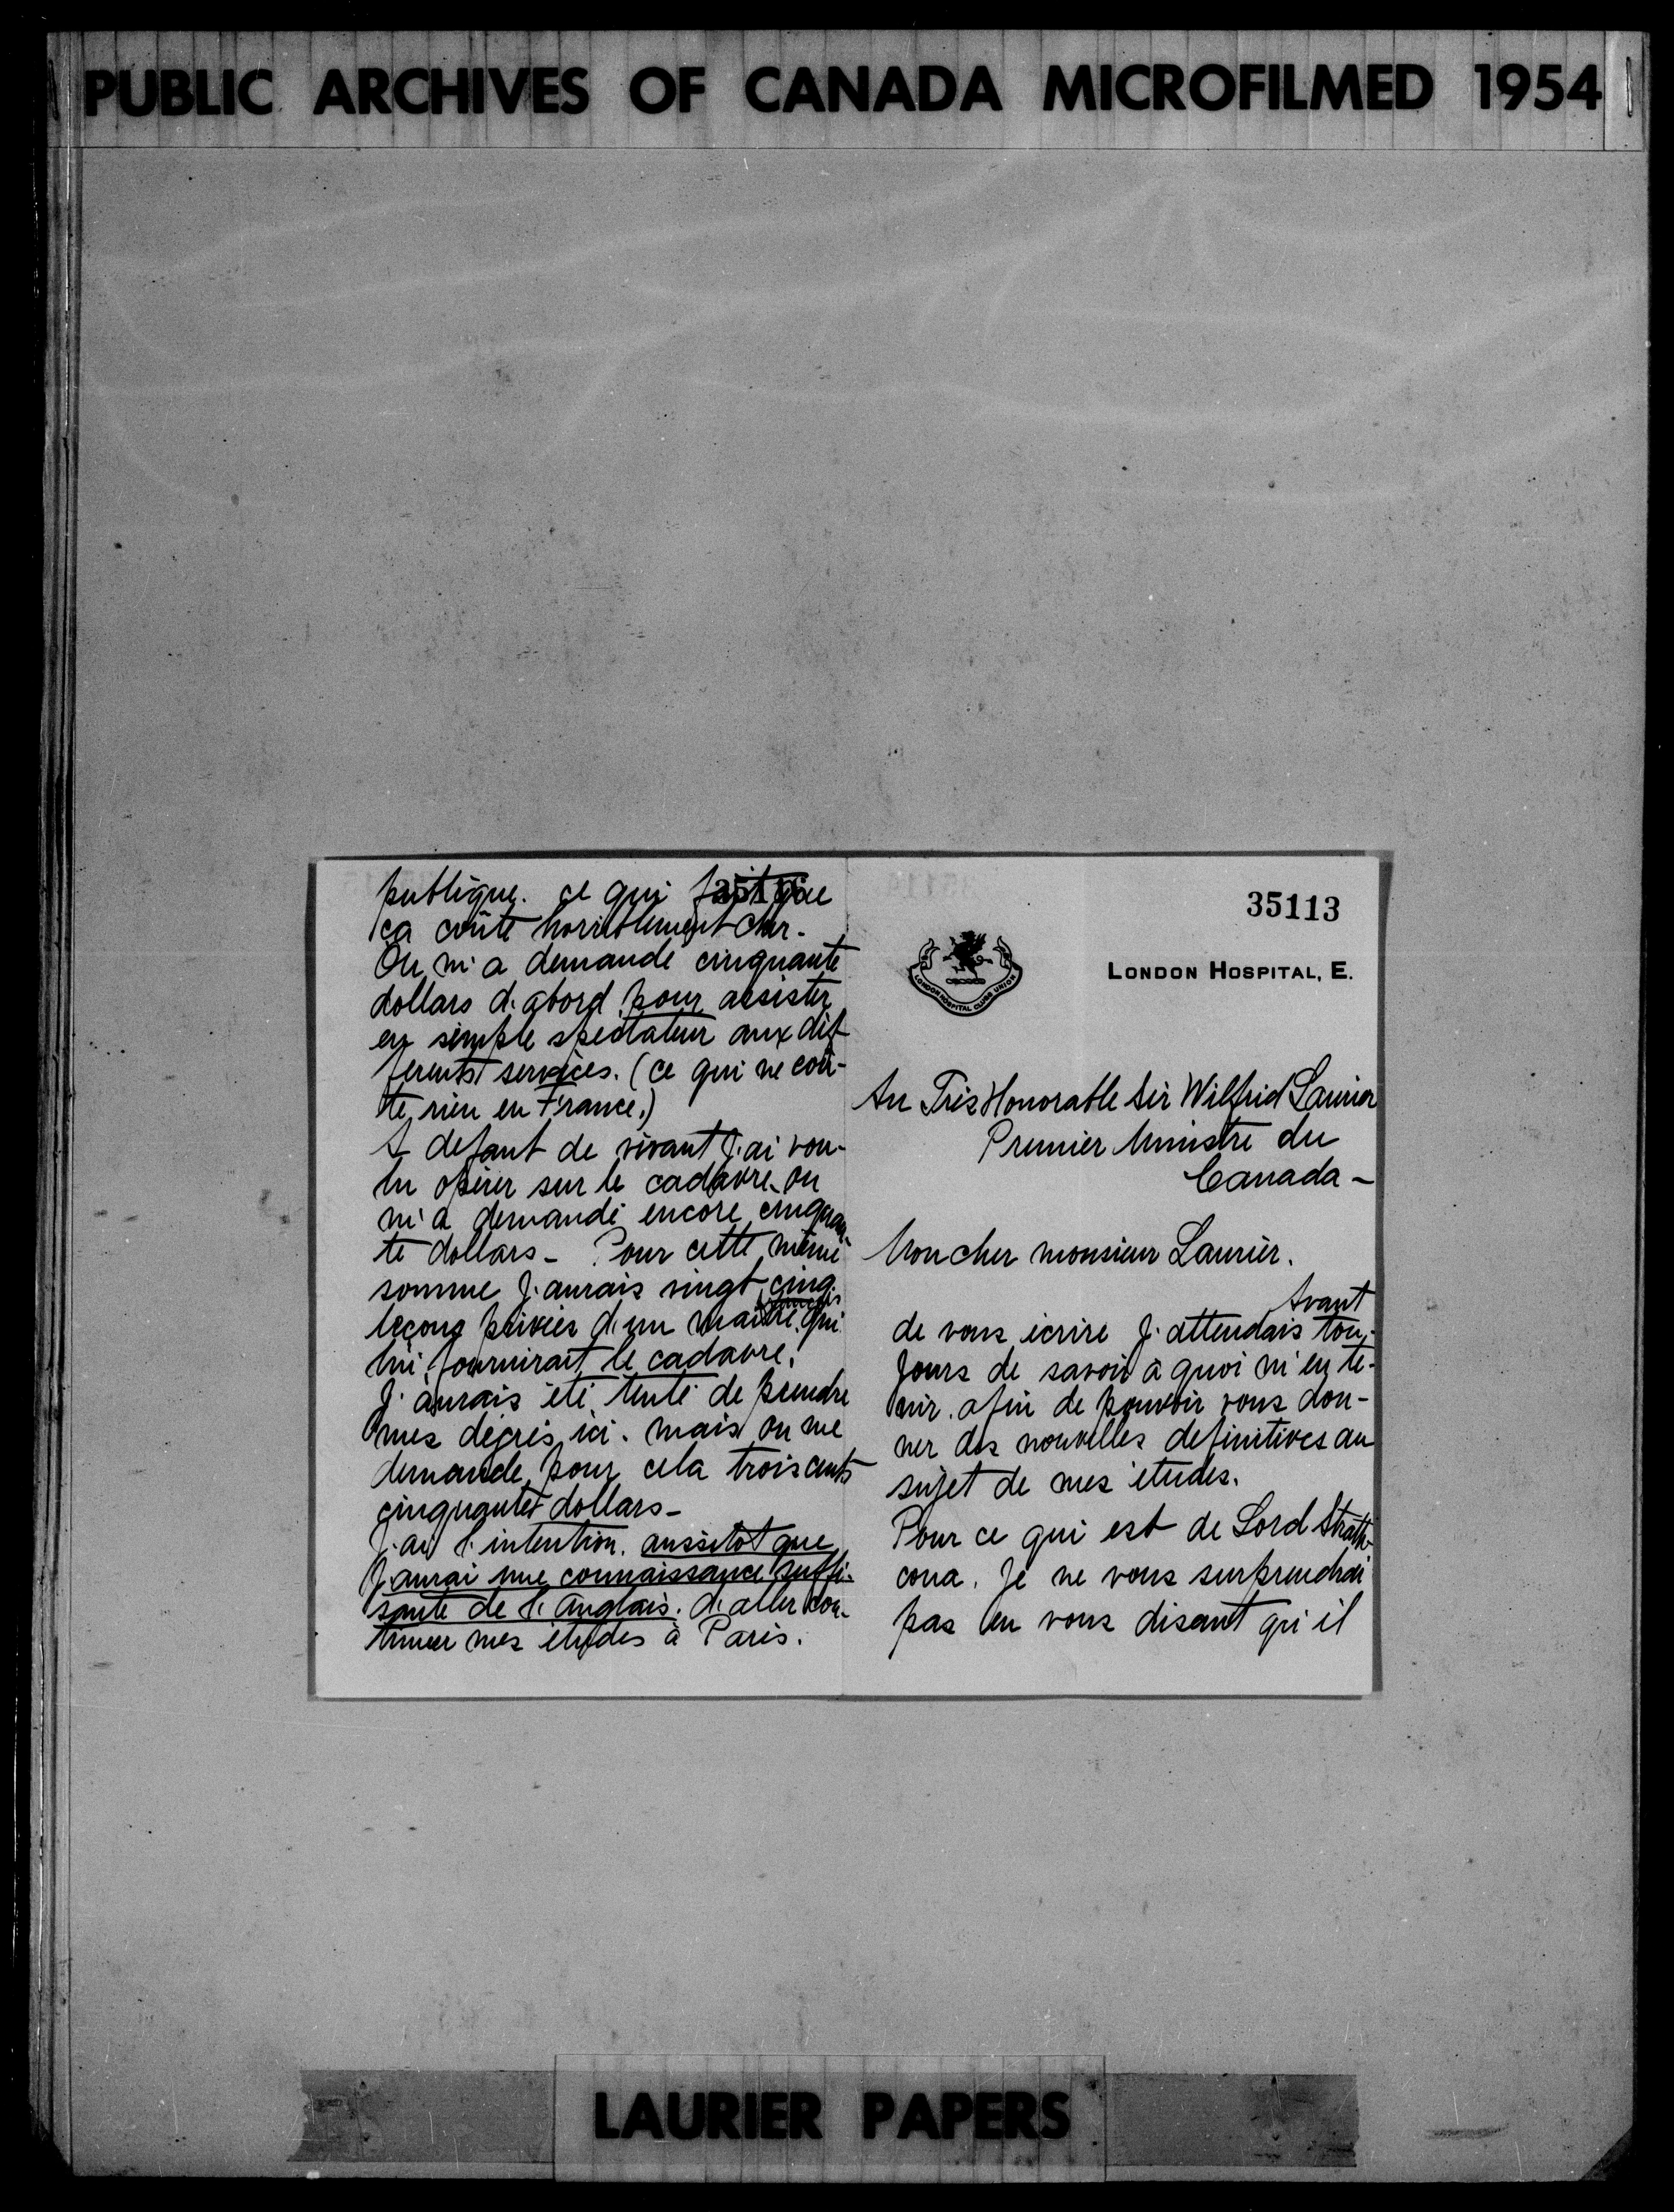 PUBLIC ARCHIVES OF CANADA MICROFILMED 1954
publique. ce qui fait que
ça coûte horriblement cher.
On m'a demandé cinquante
dollars d'abord pour assister
en simple spectateur aux dif
ferents services. (ce qui ne coû-
te rien en France.)
A defaut de vivant j'ai vou-
lu opérer sur le cadavre. on
m'a demandé encore cinquan
te dollars - Pour cette même
somme j'aurais vingt cinq
leçons privées d'un maitre français qui
lui, fournirait le cadavre.
J'aurais été tenté de prendre
mes dégrés ici. mais on me
demande pour cela trois cents
cinquante dollars -
J'ai l'intention. aussitot que
j'aurai une connaissance suffi-
sante de l'Anglais. d'aller con-
tinuer mes études à Paris.
35113
LONDON HOSPITAL CLUBS UNION
LONDON HOSPITAL, E.
Au Très Honorable Sir Wilfrid Laurier
Premier Ministre du
Canada -
Mon cher monsieur Laurier.
Avant
de vous écrire j'attendais tou-
jours de savoir à quoi m'en te-
nir. afin de pouvoir vous don-
ner des nouvelles definitives au
sujet de mes études.
Pour ce qui est de Lord Strath-
cona. Je ne vous surprendrai
pas en vous disant qu'il
LAURIER PAPERS